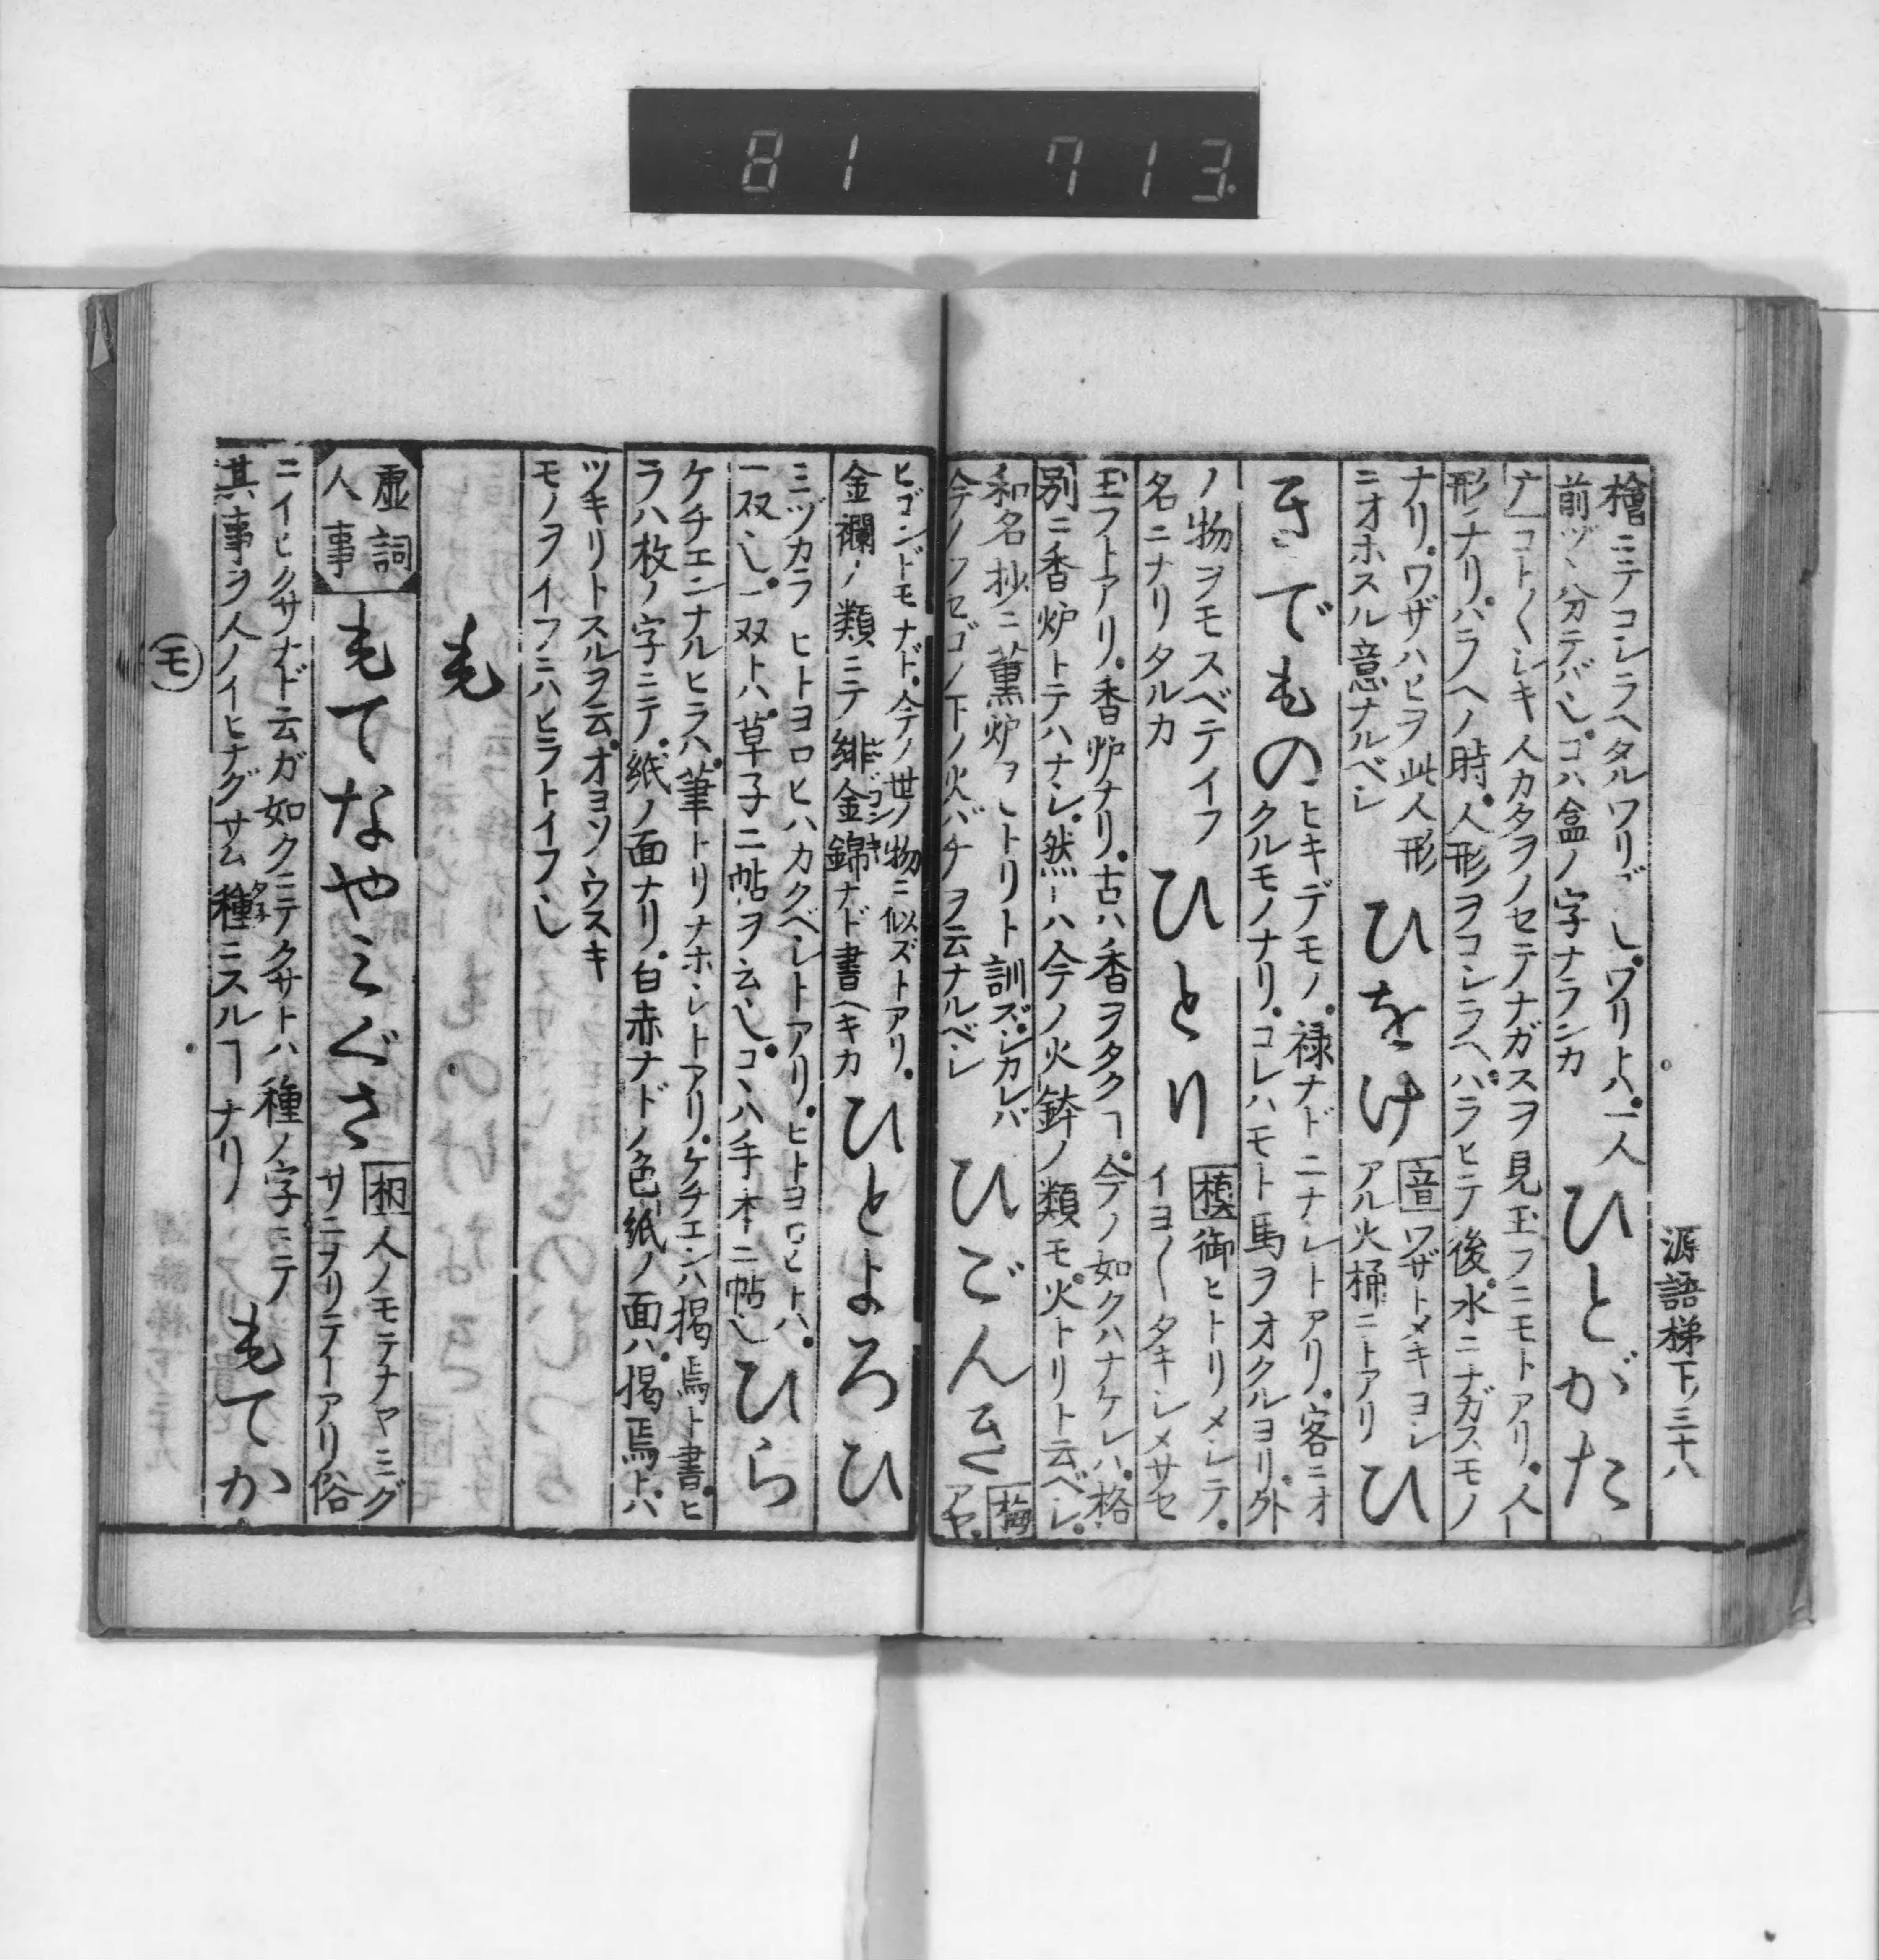 81 713
源語梯下ノ三十八
檜ニテコシラヘタルワリゴ也。ワリトハ。一人
前ヅヽ分テバ也。コハ盒ノ字ナランカ
ひとがた
コト〱シキ人カタヲノセテナガスヲ見玉フニモトアリ。人
形ナリ。ハラヘノ時。人形ヲコシラヘ。ハラヒテ後。水ニナガスモノ
ナリ。ワザハヒヲ此人形
ニオホスル意ナルベシ
ひをけ
音 ワザトメキヨシ
アル火桶ニトアリ
ひ
きでもの
ヒキデモノ。禄ナドニナシトアリ。客ニオ
クルモノナリ。コレハモト馬ヲオクルヨリ。外
ノ物ヲモスベテイフ
名ニナリタルカ
ひとり
御ヒトリメシテ。
イヨ〱タキシメサセ
玉フトアリ。香炉ナリ。古ハ香ヲタクヿ。今ノ如クハナケレハ。格
別ニ香炉トテハナシ。然ーハ今ノ火鉢ノ類モ。火トリト云ベシ。
和名抄ニ薫炉ヲヒトリト訓ズ。シカレバ
今ノフセゴノ下ノ火バチヲ云ナルベシ
ひごんき
梅
アヤ。
ヒゴンドモナド。今ノ世ノ物ニ似ズトアリ。
金襴ノ類ニテ緋金錦ナド書ヘキカ
ひとよろひ
ミヅカラヒトヨロヒハカクベシトアリ。ヒトヨロヒトハ。
一双也。一双トハ。草子二帖ヲ云也。コヽハ手本二帖也
ひら
ケチエンナルヒラハ。筆トリナホシトアリ。ケチエンハ掲焉ト書。ヒ
ラハ枚ノ字ニテ。紙ノ面ナリ。白赤ナドノ色紙ノ面ハ。掲焉トハ
ツキリトスルヲ云。オヨソウスキ
モノヲイフニハヒラトイフ也
も
虚詞
人事
もてなやみぐさ
桐 人ノモテナヤミグ
サニヲリテーアリ俗
ニイヒグサナド云ガ如クニテクサトハ種ノ字ニテ
其事ヲ人ノイヒナグサム種ニスルヿナリ
もてか
モ